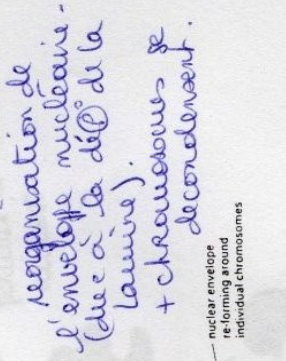 reorganisation de
l'enveloppe nucléaire.
(due à la déⓅ° de la
lamine).
+ chromosomes se
decondensent.
nuclear envelope
re-forming around
individual chromosomes